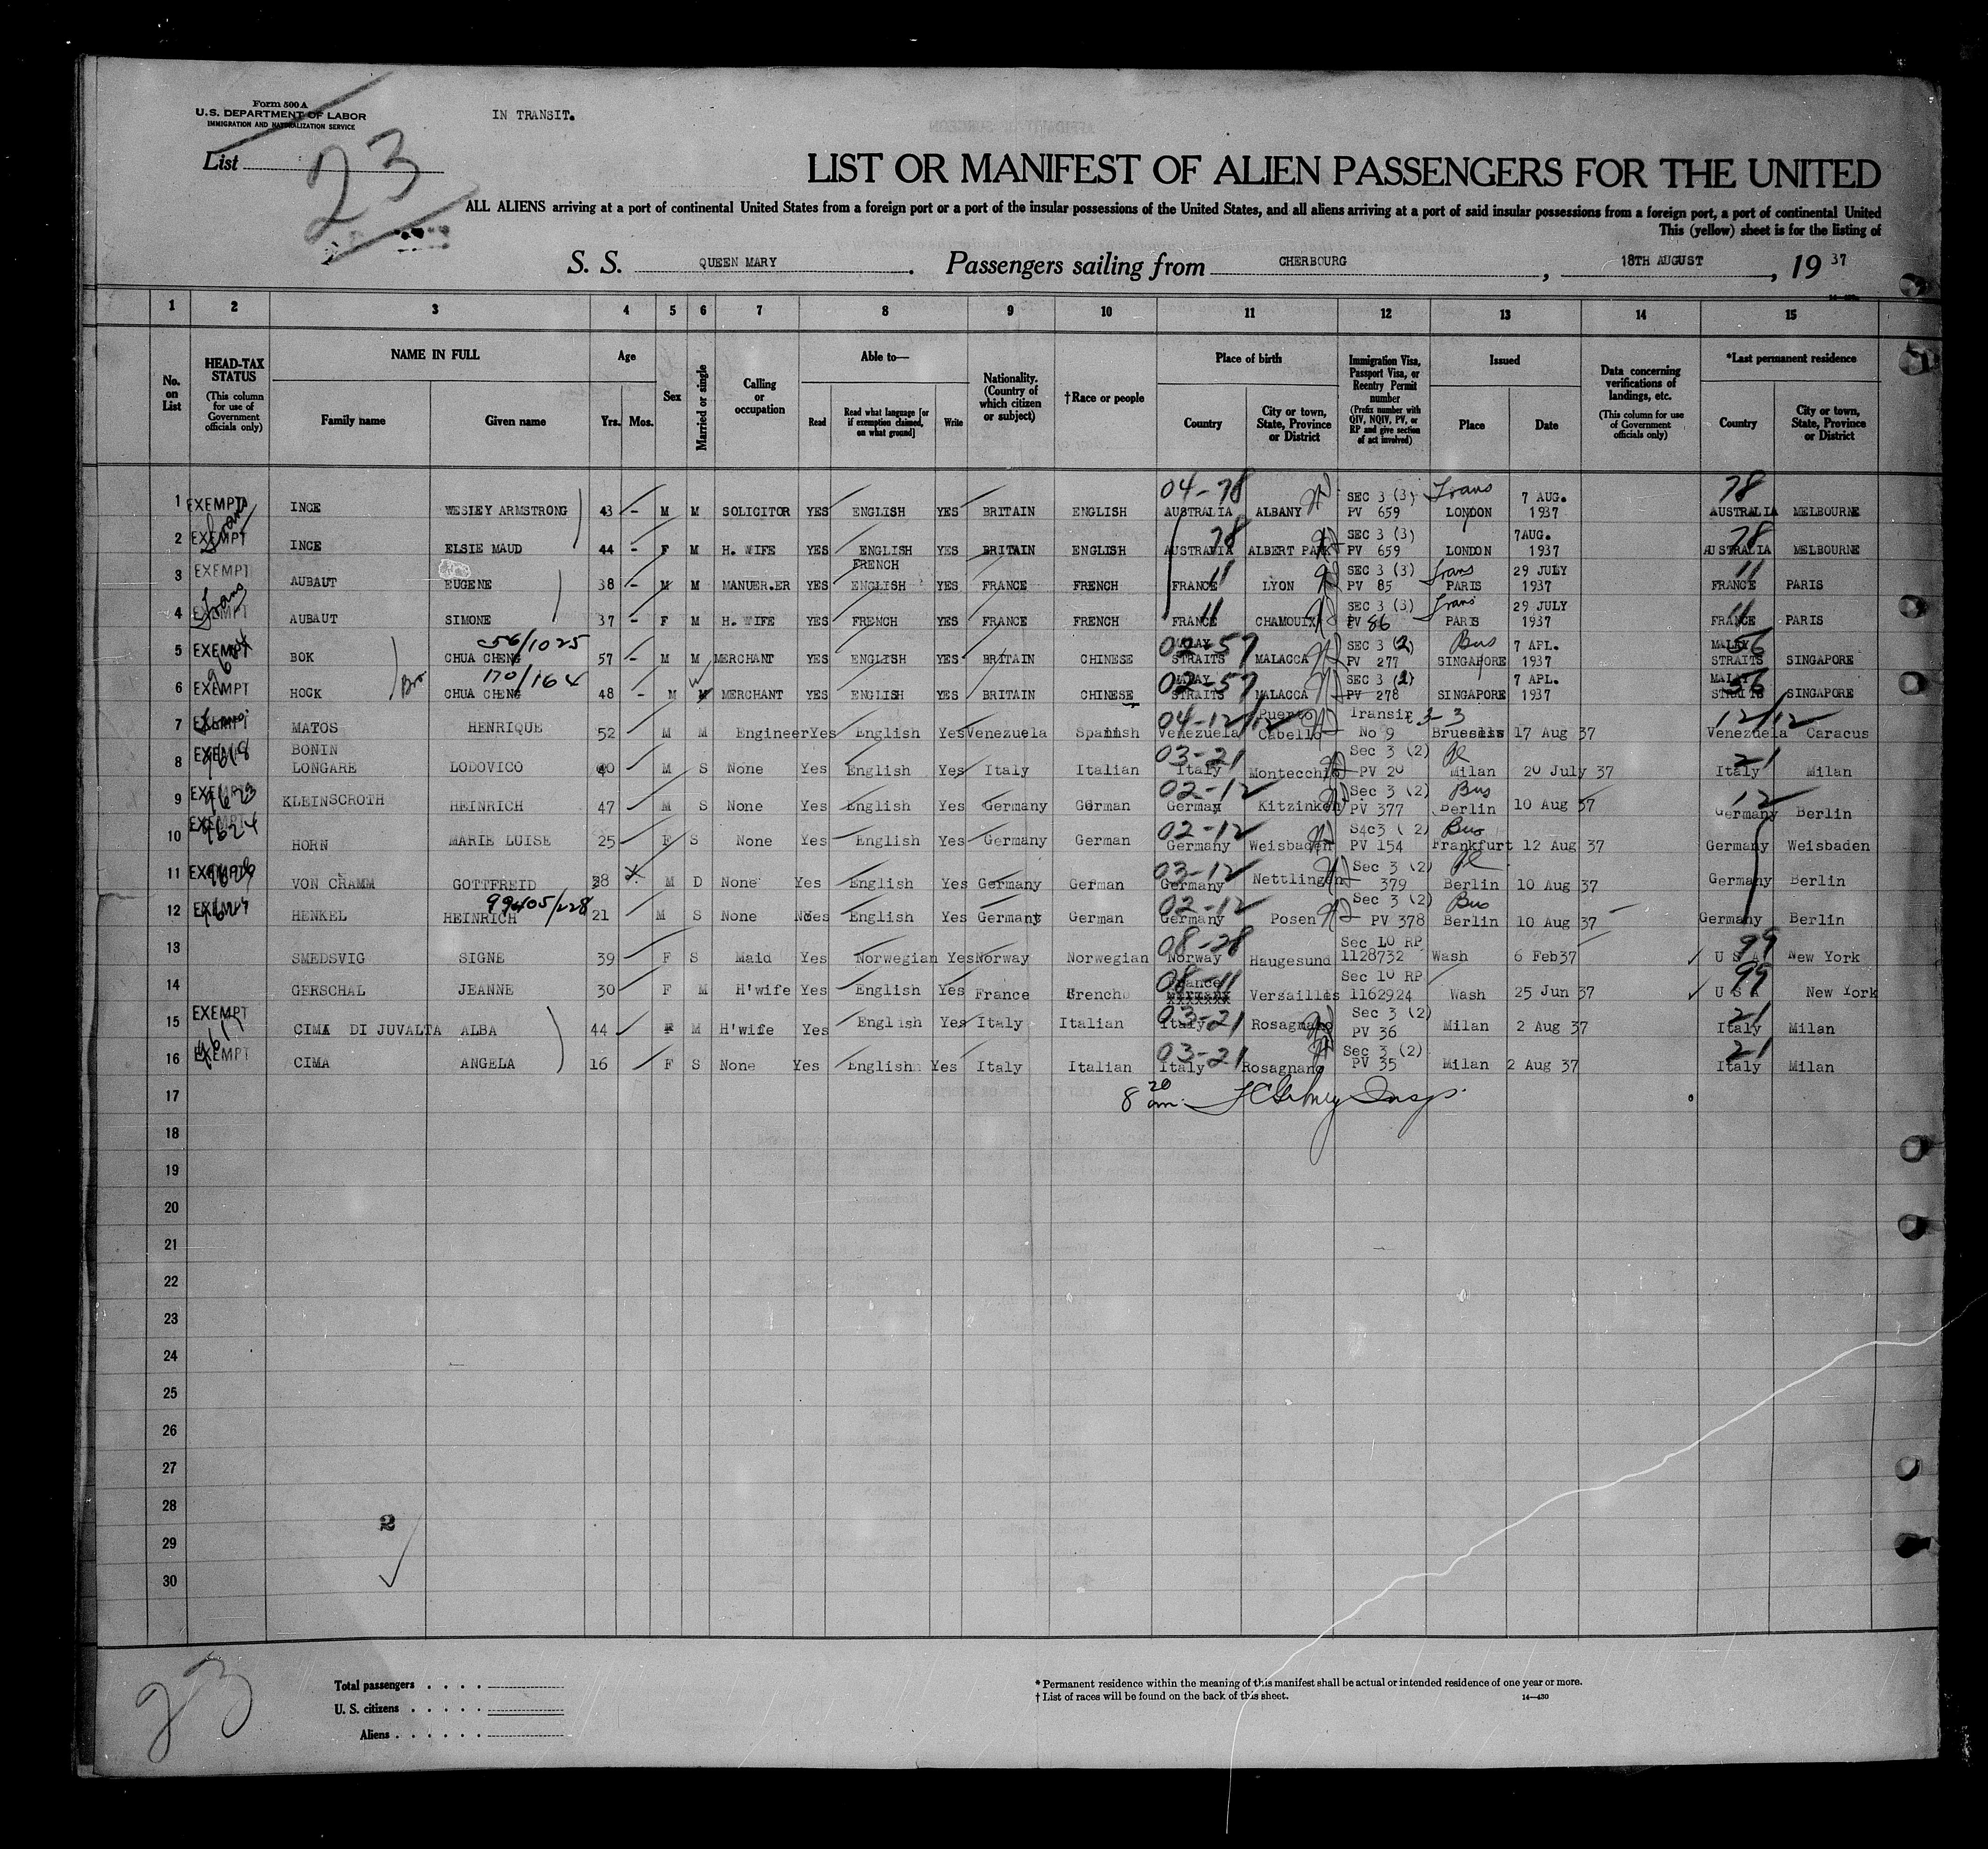 Form 500 A
U.S. DEPARTMENT OF LABOR
IMMIGRATION AND NATURALIZATION SERVICE
IN TRANSIT.
List
23
LIST OR MANIFEST OF ALIEN PASSENGERS FOR THE UNITED
ALL ALIENS arriving at a port of continental United States from a foreign port or a port of the insular possessions of the United States, and all aliens arriving at a port of said insular possessions from a foreign port, a port of continental United
This (yellow) sheet is for the listing of
S. S. QUEEN MARY. Passengers sailing from CHERBOURG, 18TH AUGUST, 19 37
1 2 3 4 5 6 7 8 9 10 11 12 13 14 15
No. on List
HEAD-TAX STATUS (This column for use of Government officials only)
NAME IN FULL
Family name Given name
Age
Yrs. Mos.
Sex
Married or single
Calling or occupation
Able to—
Read
Read what language [or if exemption claimed, on what ground]
Write
Nationality. (Country of which citizen or subject)
†Race or people
Place of birth
Country
City or town, State, Province or District
Immigration Visa, Passport Visa, or Reentry Permit number (Prefix number with QIV, NQIV, PV, or RP and give section of act involved)
Issued
Place Date
Data concerning verifications of landings, etc. (This column for use of Government officials only)
*Last permanent residence
Country
City or town, State, Province or District
04-78 SEC 3 (3) Trans 7 AUG. 78
1 EXEMPT INCE WESLEY ARMSTRONG 43 - M M SOLICITOR YES ENGLISH YES BRITAIN ENGLISH AUSTRALIA ALBANY PV 659 LONDON 1937 AUSTRALIA MELBOURNE
Trans 78 SEC 3 (3) 7AUG. 78
2 EXEMPT INCE ELSIE MAUD 44 - F M H. WIFE YES ENGLISH YES BRITAIN ENGLISH AUSTRALIA ALBERT PARK PV 659 LONDON 1937 AUSTRALIA MELBOURNE
FRENCH 11 SEC 3 (3) Trans 29 JULY 11
3 EXEMPT AUBAUT EUGENE 38 - M M MANUER.ER YES ENGLISH YES FRANCE FRENCH FRANCE LYON PV 85 PARIS 1937 FRANCE PARIS
Trans 11 SEC 3 (3) Trans 29 JULY 11
4 EXEMPT AUBAUT SIMONE 37 - F M H. WIFE YES FRENCH YES FRANCE FRENCH FRANCE CHAMOUIX PV 86 PARIS 1937 FRANCE PARIS
56/1025 02-57 MALAY SEC 3 (2) Bus 7 APL. MALAY 56
5 EXEMPT BOK CHUA CHENG 57 - M M MERCHANT YES ENGLISH YES BRITAIN CHINESE STRAITS MALACCA PV 277 SINGAPORE 1937 STRAITS SINGAPORE
170/164 02-57 MALAY SEC 3 (2) 7 APL. MALAY 56
6 EXEMPT HOCK Bro CHUA CHENG 48 - M M MERCHANT YES ENGLISH YES BRITAIN CHINESE STRAITS MALACCA PV 278 SINGAPORE 1937 STRAITS SINGAPORE
04-12/12 Puerto Transit 3-3 12/12
7 EXEMPT MATOS HENRIQUE 52 M M Engineer Yes English Yes Venezuela Spanish Venezuela Cabello No 9 Brussels 17 Aug 37 Venezuela Caracus
BONIN 03-21 Sec 3 (2) 21
8 EXEMPT LONGARE LODOVICO 40 M S None Yes English Yes Italy Italian Italy Montecchio PV 20 Milan 20 July 37 Italy Milan
02-12 Sec 3 (2) Bus 12
9 EXEMPT KLEINSCROTH HEINRICH 47 M S None Yes English Yes Germany German Germay Kitzinken PV 377 Berlin 10 Aug 37 Germany Berlin
9624 02-12 S4c3 ( 2) Bus
10 EXEMPT HORN MARIE LUISE 25 F S None Yes English Yes Germany German Germany Weisbaden PV 154 Frankfurt 12 Aug 37 Germany Weisbaden
03-12 Sec 3 (2)
11 EXEMPT VON CRAMM GOTTFREID 28 M D None Yes English Yes Germany German Germany Nettlingen 379 Berlin 10 Aug 37 Germany Berlin
99405/228 02-12 Sec 3 (2) Bus
12 EXEMPT HENKEL HEINRICH 21 M S None Yes English Yes Germany German Germany Posen PV 378 Berlin 10 Aug 37 Germany Berlin
08-28 Sec 10 RP 99
13 SMEDSVIG SIGNE 39 F S Maid Yes Norwegian Yes Norway Norwegian Norway Haugesund 1128732 Wash 6 Feb37 U S A New York
08-11 France Sec 10 RP 99
14 GERSCHAL JEANNE 30 F M H'wife Yes English Yes France French Versailles 1162924 Wash 25 Jun 37 U S A New York
03-21 Sec 3 (2) 21
15 EXEMPT CIMA DI JUVALTA ALBA 44 F M H'wife Yes English Yes Italy Italian Italy Rosagnano PV 36 Milan 2 Aug 37 Italy Milan
03-21 Sec 3 (2) 21
16 EXEMPT CIMA ANGELA 16 F S None Yes English Yes Italy Italian Italy Rosagnano PV 35 Milan 2 Aug 37 Italy Milan
17 8 20 am. Insp.
18
19
20
21
22
23
24
25
26
27
28
2
29
30
23
Total passengers
U. S. citizens
Aliens
* Permanent residence within the meaning of this manifest shall be actual or intended residence of one year or more.
† List of races will be found on the back of this sheet. 14—430